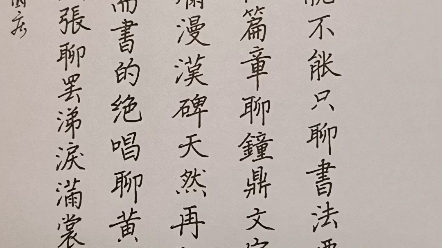 能不能只聊書法
篇章聊鐘鼎文
漫漢碑天然再
書的绝唱聊黄
張聊罢涕淚滿裳